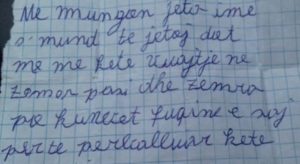 Me mungon jeta ime
s mund te jetoj dot
me me kete vuajtje ne
zemer pasi dhe zemra
po humbet fuqine e saj
per te perballuar kete